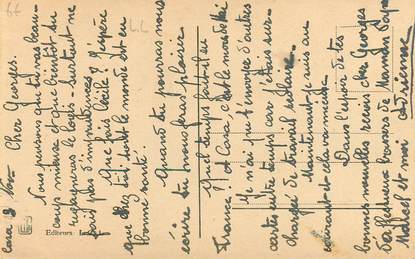 66
LL
Casa 3 Nov
Cher Georges.
Nous pensons que tu vas beau-
coup mieux et que bientôt tu
regagneras le logis. Surtout ne
fais pas d'imprudences
Que fais Cécile? J'espère
que chez toi tout le monde est en
bonne santé.
Quand tu pourras nous
écrire tu nous feras plaisir
Quel temps fait-il en
France? A Casa, c'est le
Je n'ai pu t'envoyer d'autres
cartes entre temps car j'étais sur-
chargée de travail scolaire.
Maintenant je suis au
courant et cela va mieux
Dans l'espoir de tes
bonnes nouvelles reçois cher Georges
d'affectueux baisers de Maman Papa
et moi
Editeurs